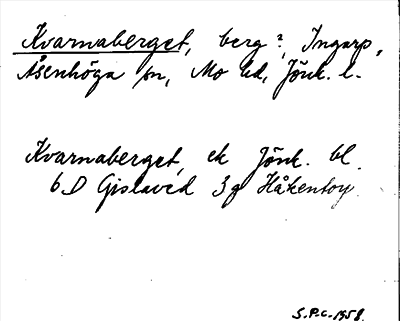 Kvarnaberget, berg?, Ingarp,
Åsenhöga sn, Mo hd, Jönk. l.
Kvarnaberget, ek Jönk. bl.
6 D Gislaved 3g Håkentorp
S.P.C. 1958.